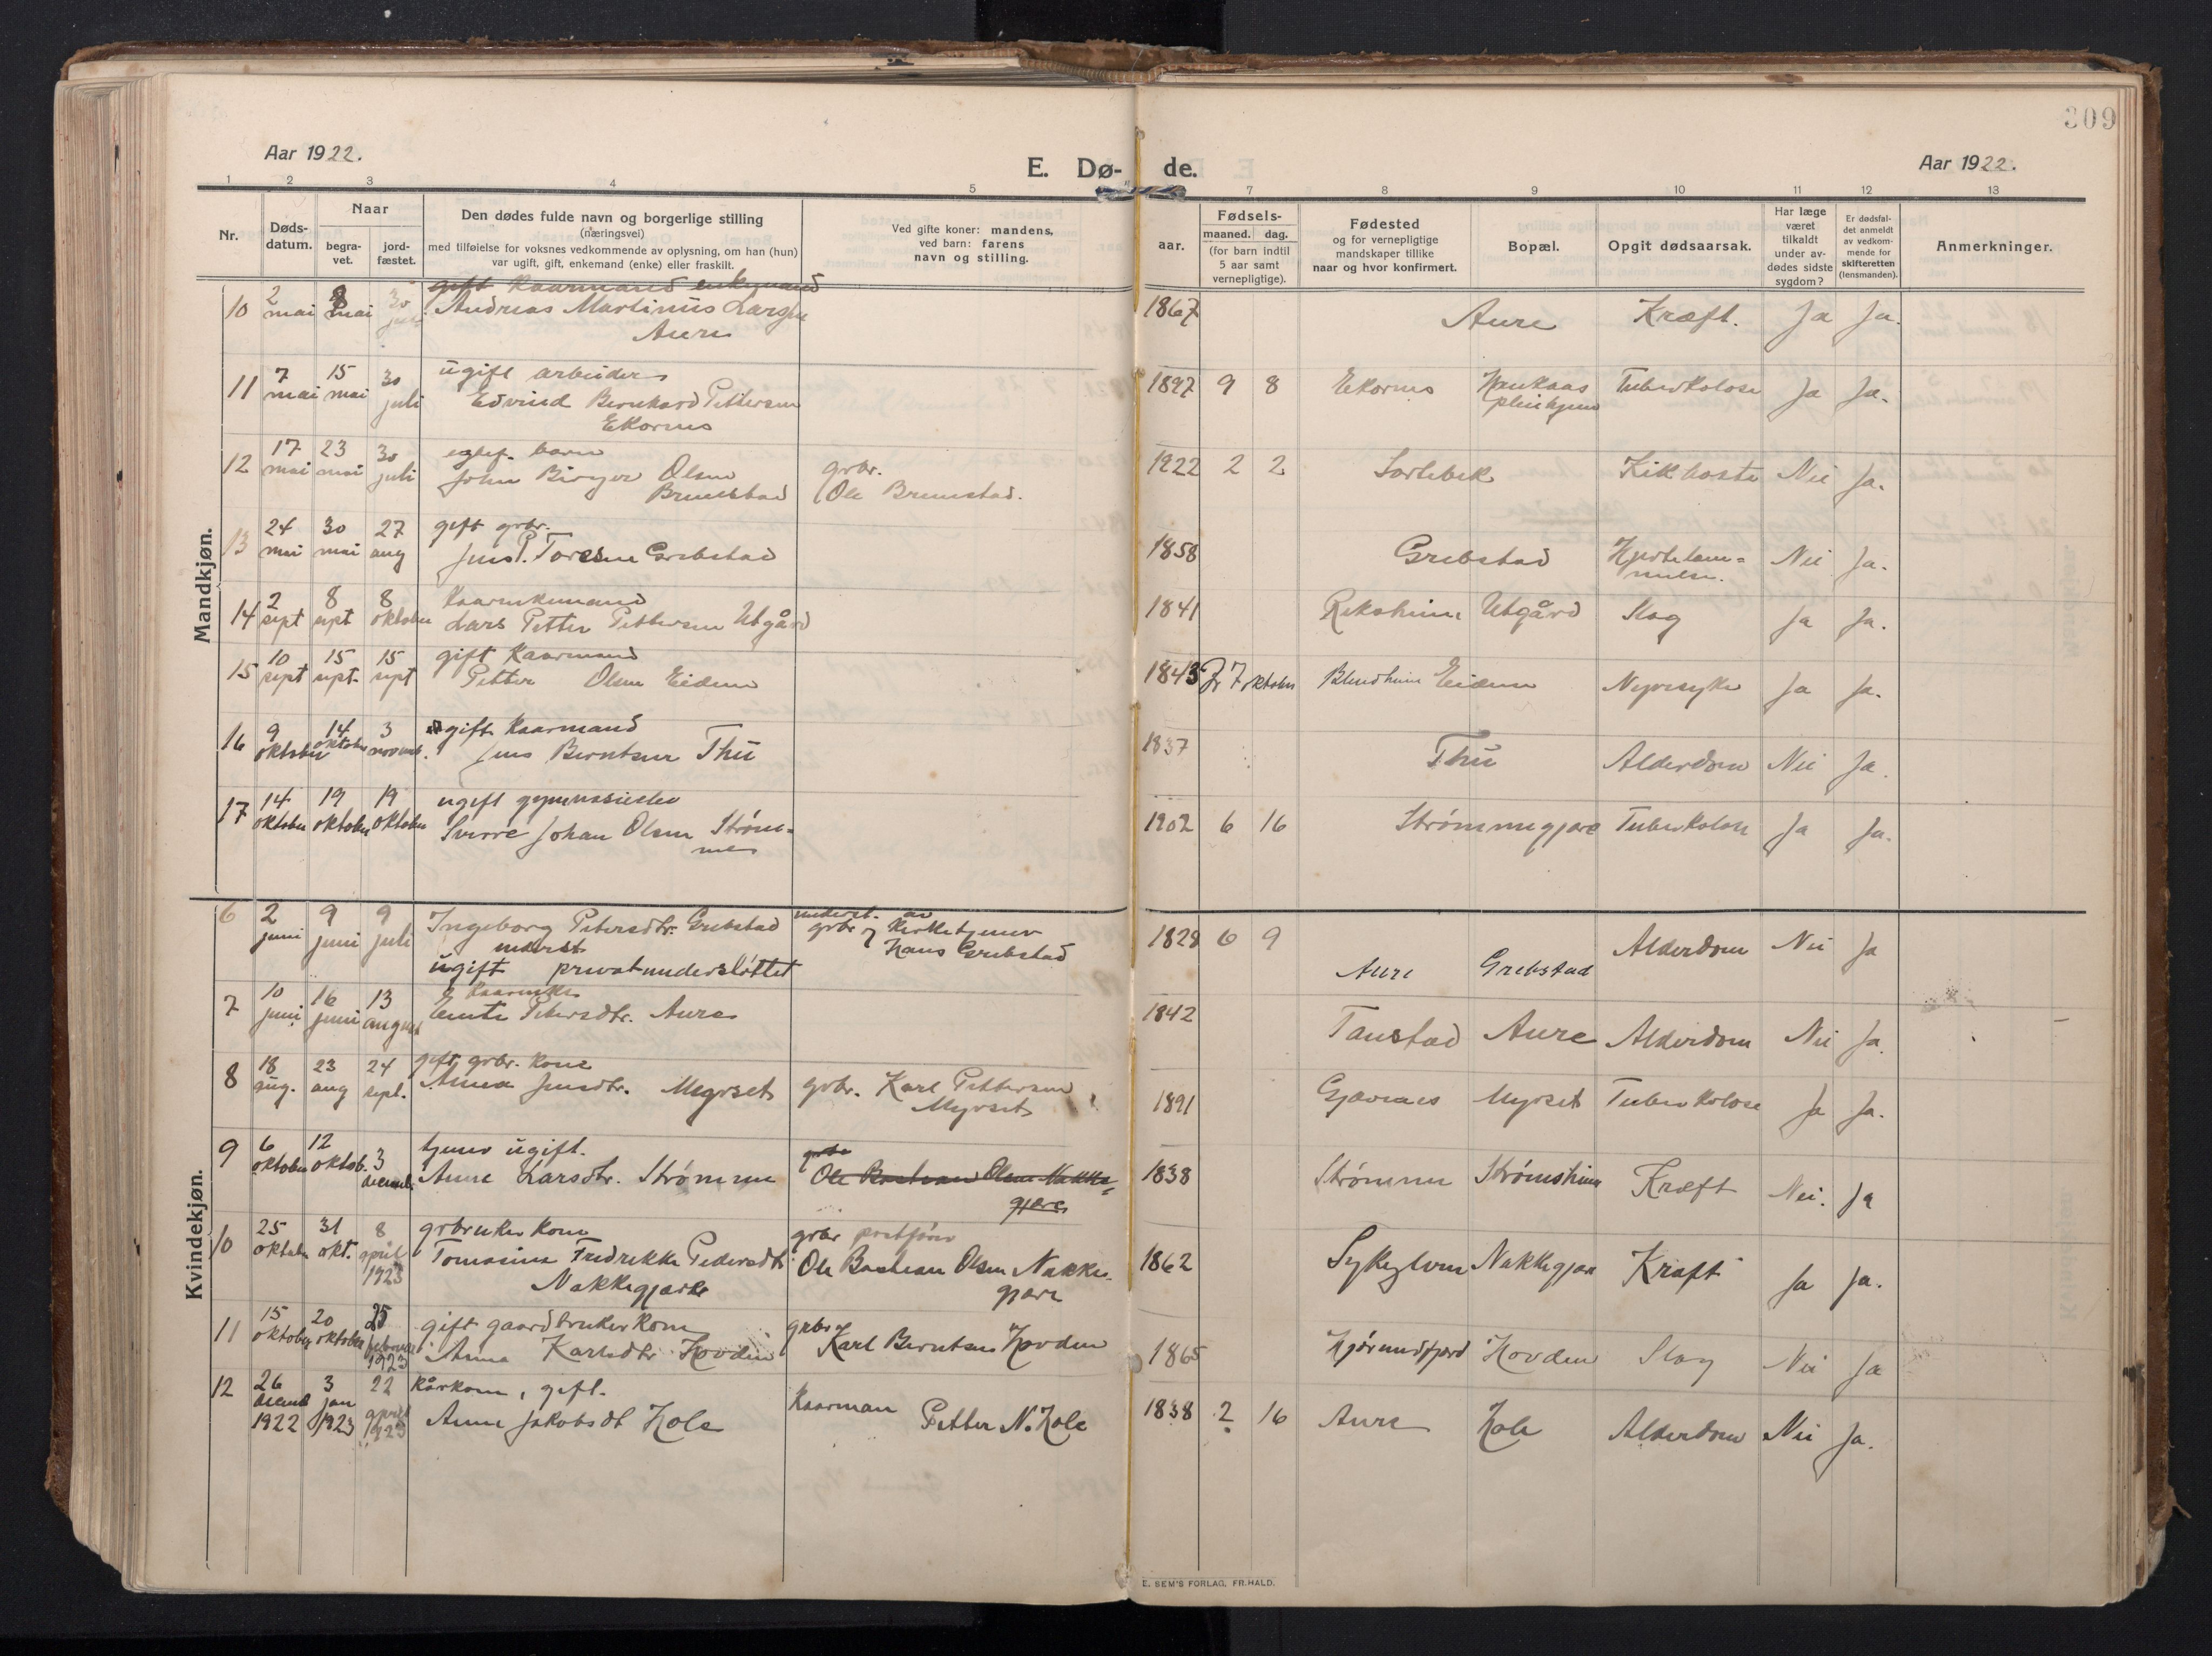 309
Aar 1922.
E. Dø- de.
Aar 1922.
1 2 3 4 5 7 8 9 10 11 12 13
Nr.
Døds-
datum.
Naar
begra-
vet.
jord-
fæstet.
Den dødes fulde navn og borgerlige stilling
(næringsvei)
med tilføielse for voksnes vedkommende av oplysning, om han (hun)
var ugift, gift, enkemand (enke) eller fraskilt.
Ved gifte koner: mandens,
ved barn: farens
navn og stilling.
aar.
Fødsels-
maaned. dag.
(for barn indtil
5 aar samt
vernepligtige).
Fødested
og for vernepligtige
mandskaper tillike
naar og hvor konfirmert.
Bopæl.
Opgit dødsaarsak.
Har læge
været
tilkaldt
under av-
dødes sidste
sygdom?
Er dødsfal-
det anmeldt
av vedkom-
mende for
skifteretten
(lensmanden).
Anmerkninger.
Mandkjøn.
gift Kaarmand enkemand
10 2 mai 8 mai 30 juli Andreas Martinus Larsen
Aure
1867 Aure Kræft. Ja Ja.
11 7 mai 15 mai 30 juli ugift arbeider
Edvind Bernhard Pettersen
Ekornes
1897 9 8 Ekornes Haukaas
pleiehjem Tuberkolose Ja Ja.
12 17 mai 23 mai 30 juli egtef. barn
John Birger Olsen
Brunstad
grbr.
Ole Brunstad.
1922 2 2 Sorlebek Kikhoste Nei Ja.
13 24 mai 30 mai 27 aug gift grbr.
Jens P. Toresen Grebstad
1858 Grebstad Hjertelam-
melse. Nei Ja.
14 2 sept 8 sept 8 oktober Kaarenkemand
Lars Petter Pettersen Utgård
1841 Rekshim Utgård Slag Ja Ja.
15 10 sept 15 sept. 15 sept gift Kaarmand
Petter Olsen Eidem
1843 7 oktober Blindheim Eidem Nyresyke Ja Ja.
16 9 oktober 14 oktober 3 novemb. gift Kaarmand
Jens Berntsen Thu
1837 Thu Alderdom Nei Ja.
17 14 oktober 19 oktober 19 oktober ugift gymnasieelev
Sverre Johan Olsen Strøm-
mes
1902 6 16 Strømmegjære Tuberkolose Ja Ja.
Kvindekjøn.
6 2 juni 9 juni 9 juli Ingeborg Petersdtr. Grebstad
underst.
ugift privatunderstøttet
underst. av
grbr og Kirketjener
Hans Grebstad
1828 6 9 Aure Grebstad Alderdom Nei Ja
7 10 juni 16 juni 13 august Kaarenke
Ente Petersdtr. Aure
1842 Tanstad Aure Alderdom Nei Ja.
8 18 aug. 23 aug 24 sept. gift grbr. kone
Anna Jensdtr. Myrset
grbr. Karl Pettersen
Myrset
1891 Gjævenes Myrset Tuberkolose Ja Ja.
9 6 oktober 12 oktob. 3 decemb. tjener ugift.
Anne Larsdtr. Strømme
grbr
Ole Bastian Olsen Nakke-
gjære
1838 Strømme Strømsheim Kræft Nei. Ja
10 25 oktober 31 okt. 8 april 1923 grbruker kone
Tomasine Fredrikke Pedersdtr
Nakkegjærde
grbr postfører
Ole Bastian Olsen Nakke-
gjære
1862 Sykylven Nakkegjære Kræft Ja Ja.
11 15 oktober 20 oktober 25 februar 1923 gift gaardbruker kone
Anna Karlsdtr Hovden
grbr
Karl Berntsen Hovden
1865 Hjørundfjord Hovden Slag Nei Ja
12 26 decemb 1922 3 jan 1923 22 april 1923 Kårkone, gift.
Anne Jakobsdt Hole
Kaarman Petter N. Hole
1838 2 16 Aure Hole Alderdom Nei Ja.
E. SEM'S FORLAG, FR.HALD.